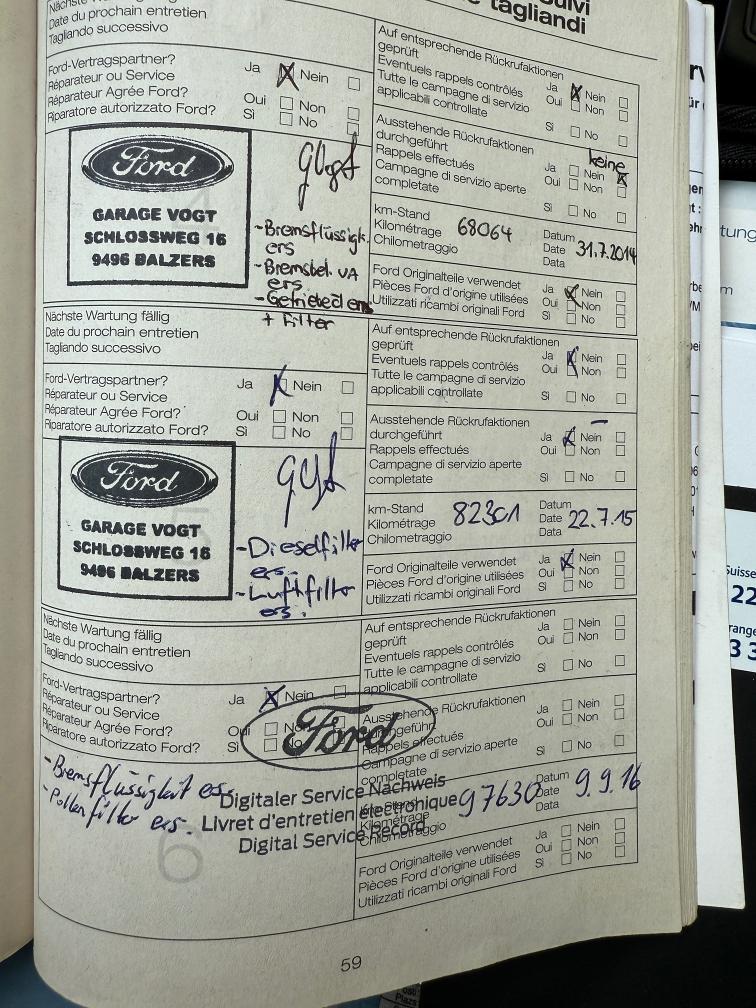 Suivi
tagliandi
Date du prochain entretien
Tagliando successivo
Ford-Vertragspartner? Ja Nein
Réparateur ou Service
Réparateur Agrée Ford? Oui Non
Riparatore autorizzato Ford? Sì No
Auf entsprechende Rückrufaktionen
geprüft Ja Nein
Eventuels rappels contrôlés Oui Non
Tutte le campagne di servizio
applicabili controllate Sì No
Ausstehende Rückrufaktionen keine
durchgeführt Ja Nein
Rappels effectués Oui Non
Campagne di servizio aperte
completate Sì No
Ford
GARAGE VOGT
SCHLOSSWEG 16
9496 BALZERS
-Bremsflüssigk.
ers
-Bremsbel. VA
ers.
-Getriebeöl ers
+ Filter
km-Stand
Kilométrage 68064
Chilometraggio
Datum
Date 31.7.2014
Data
Ford Originalteile verwendet Ja Nein
Pièces Ford d'origine utilisées Oui Non
Utilizzati ricambi originali Ford Sì No
Nächste Wartung fällig
Date du prochain entretien
Tagliando successivo
Auf entsprechende Rückrufaktionen
geprüft Ja Nein
Eventuels rappels contrôlés Oui Non
Tutte le campagne di servizio
applicabili controllate Sì No
Ford-Vertragspartner? Ja Nein
Réparateur ou Service
Réparateur Agrée Ford? Oui Non
Riparatore autorizzato Ford? Sì No
Ausstehende Rückrufaktionen
durchgeführt Ja Nein
Rappels effectués Oui Non
Campagne di servizio aperte
completate Sì No
Ford
GARAGE VOGT
SCHLOSSWEG 16
9496 BALZERS
-Dieselfilter
ers.
-Luftfilter
ers.
km-Stand
Kilométrage 82301
Chilometraggio
Datum
Date 22.7.15
Data
Ford Originalteile verwendet Ja Nein
Pièces Ford d'origine utilisées Oui Non
Utilizzati ricambi originali Ford Sì No
Nächste Wartung fällig
Date du prochain entretien
Tagliando successivo
Auf entsprechende Rückrufaktionen
geprüft Ja Nein
Eventuels rappels contrôlés Oui Non
Tutte le campagne di servizio
applicabili controllate Sì No
Ford-Vertragspartner? Ja Nein
Réparateur ou Service
Réparateur Agrée Ford? Oui No
Riparatore autorizzato Ford? Sì No
Ausstehende Rückrufaktionen
durchgeführt Ja Nein
Rappels effectués Oui Non
Campagne di servizio aperte
completate Sì No
Ford
-Bremsflüssigkeit ers.
-Pollenfilter ers.
6
Digitaler Service Nachweis
Livret d'entretien électronique
Digital Service Record
Kilométrage 97630
Chilometraggio
Datum
Date 9.9.16
Data
Ford Originalteile verwendet Ja Nein
Pièces Ford d'origine utilisées Oui Non
Utilizzati ricambi originali Ford Sì No
59
Suisse
22